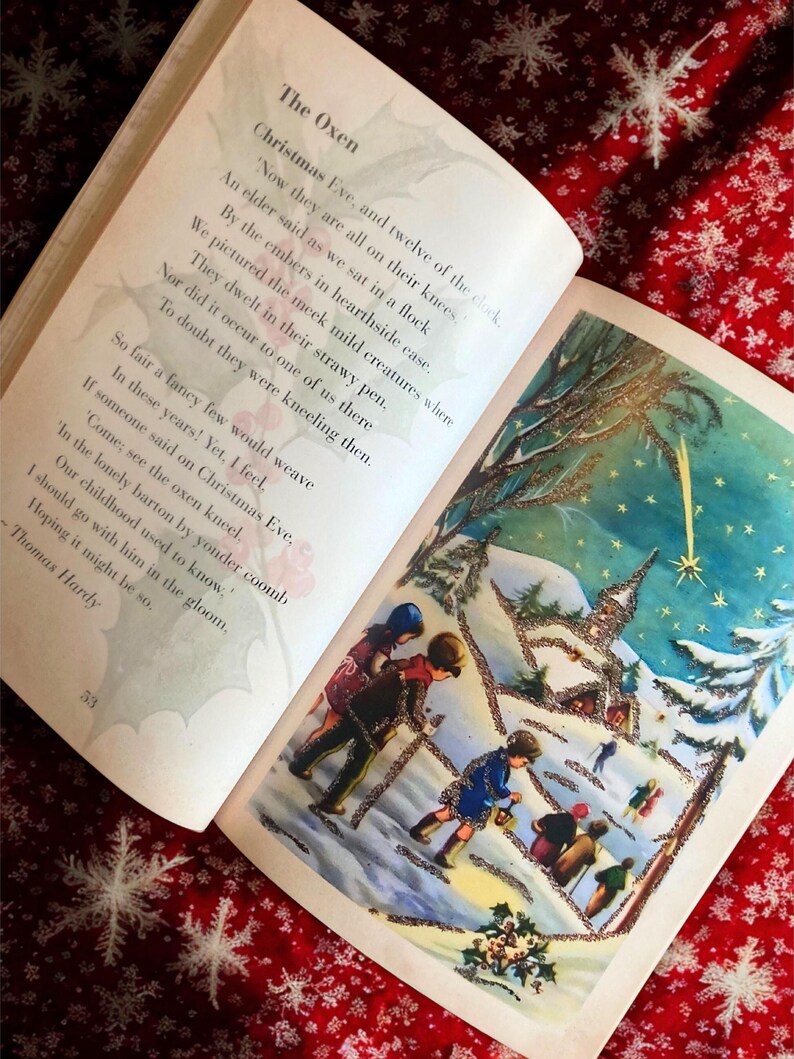 The Oxen
Christmas Eve, and twelve of the clock.
'Now they are all on their knees,'
An elder said as we sat in a flock
By the embers in hearthside ease.
We pictured the meek mild creatures where
They dwelt in their strawy pen,
Nor did it occur to one of us there
To doubt they were kneeling then.
So fair a fancy few would weave
In these years! Yet, I feel,
If someone said on Christmas Eve,
'Come; see the oxen kneel,
'In the lonely barton by yonder coomb
Our childhood used to know,'
I should go with him in the gloom,
Hoping it might be so.
~ Thomas Hardy
53